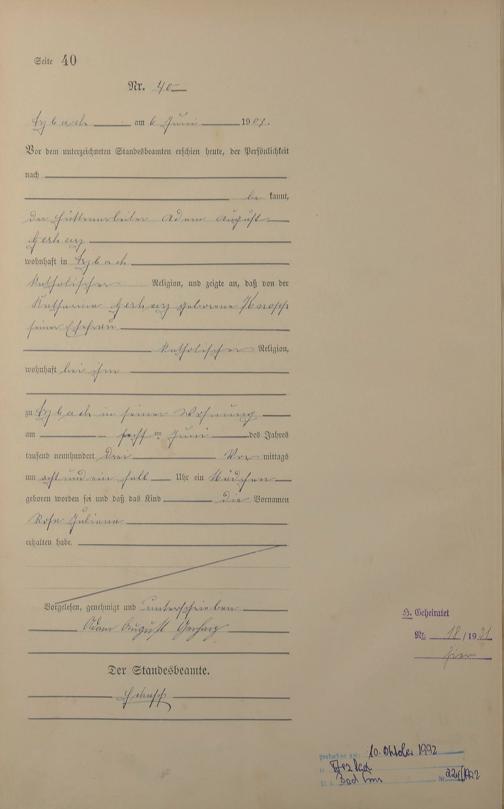 Seite 40
Nr. 40
Arzbach am 6 Juni 190
Vor dem unterzeichneten Standesbeamten erschien heute, der Persönlichkeit
nach
be kannt,
der Hüttenarbeiter Adam August
Gerharz
wohnhaft in Arzbach
katholischer Religion, und zeigte an, daß von der
Katharina Gerharz geborene
seiner Ehefrau
katholischer Religion,
wohnhaft bei ihm
zu Arzbach in seiner Wohnung
am Juni des Jahres
tausend neunhundert drei Vor mittags
um acht und ein halb Uhr ein Mädchen
geboren worden sei und daß das Kind die Vornamen
Rosa Juliana
erhalten habe.
Vorgelesen, genehmigt und unterschrieben
Adam August Gerharz
Der Standesbeamte.
H. Geheiratet
Nr. 18 /19 31
hier
10. Oktober 1992
Bad Ems